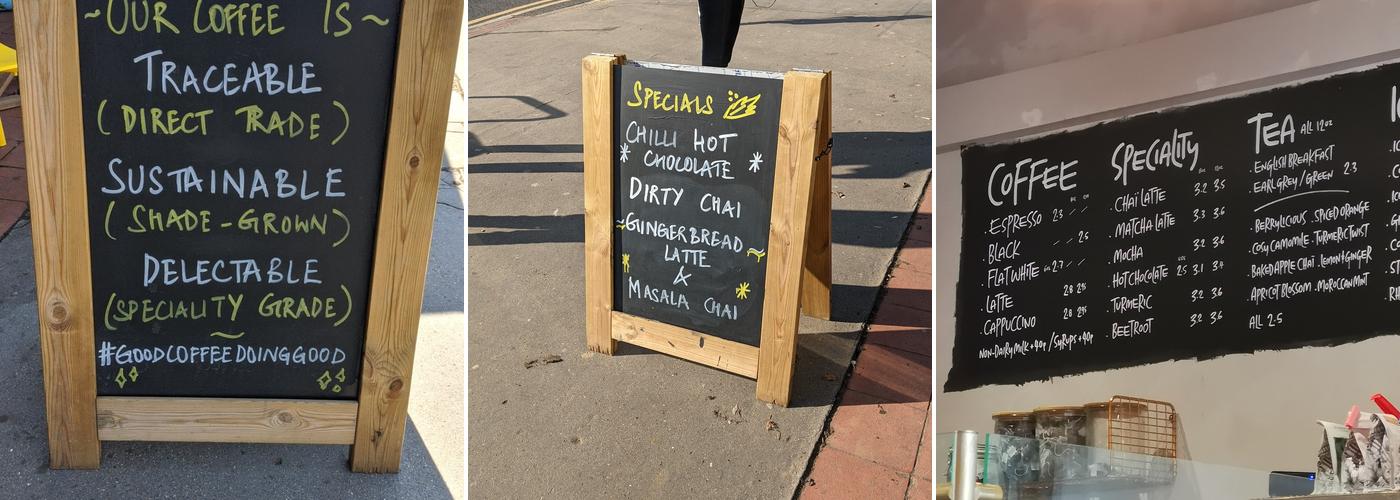 ~OUR COFFEE IS~
TRACEABLE
(DIRECT TRADE)
SUSTAINABLE
(SHADE-GROWN)
DELECTABLE
(SPECIALITY GRADE)
~
#GOODCOFFEEDOINGGOOD
SPECIALS
CHILLI HOT
CHOCOLATE
DIRTY CHAI
~GINGERBREAD~
LATTE
&
MASALA CHAI
COFFEE
. ESPRESSO 2.3 - -
. BLACK - - 2.5
. FLAT WHITE 2.7 - -
. LATTE 2.8 2.95
. CAPPUCCINO 2.8 2.95
NON-DAIRY MILK +40p / SYRUPS +40p
SPECIALITY
. CHAI LATTE 3.2 3.5
. MATCHA LATTE 3.3 3.6
. MOCHA 3.2 3.6
. HOT CHOCOLATE 2.5 3.1 3.4
. TURMERIC 3.2 3.6
. BEETROOT 3.2 3.6
TEA ALL 12oz
. ENGLISH BREAKFAST
. EARL GREY / GREEN 2.3
. BERRYLICIOUS . SPICED ORANGE
. COSY CAMOMILE . TURMERIC TWIST
. BAKED APPLE CHAI . LEMON+GINGER
. APRICOT BLOSSOM . MOROCCAN MINT
ALL 2.5